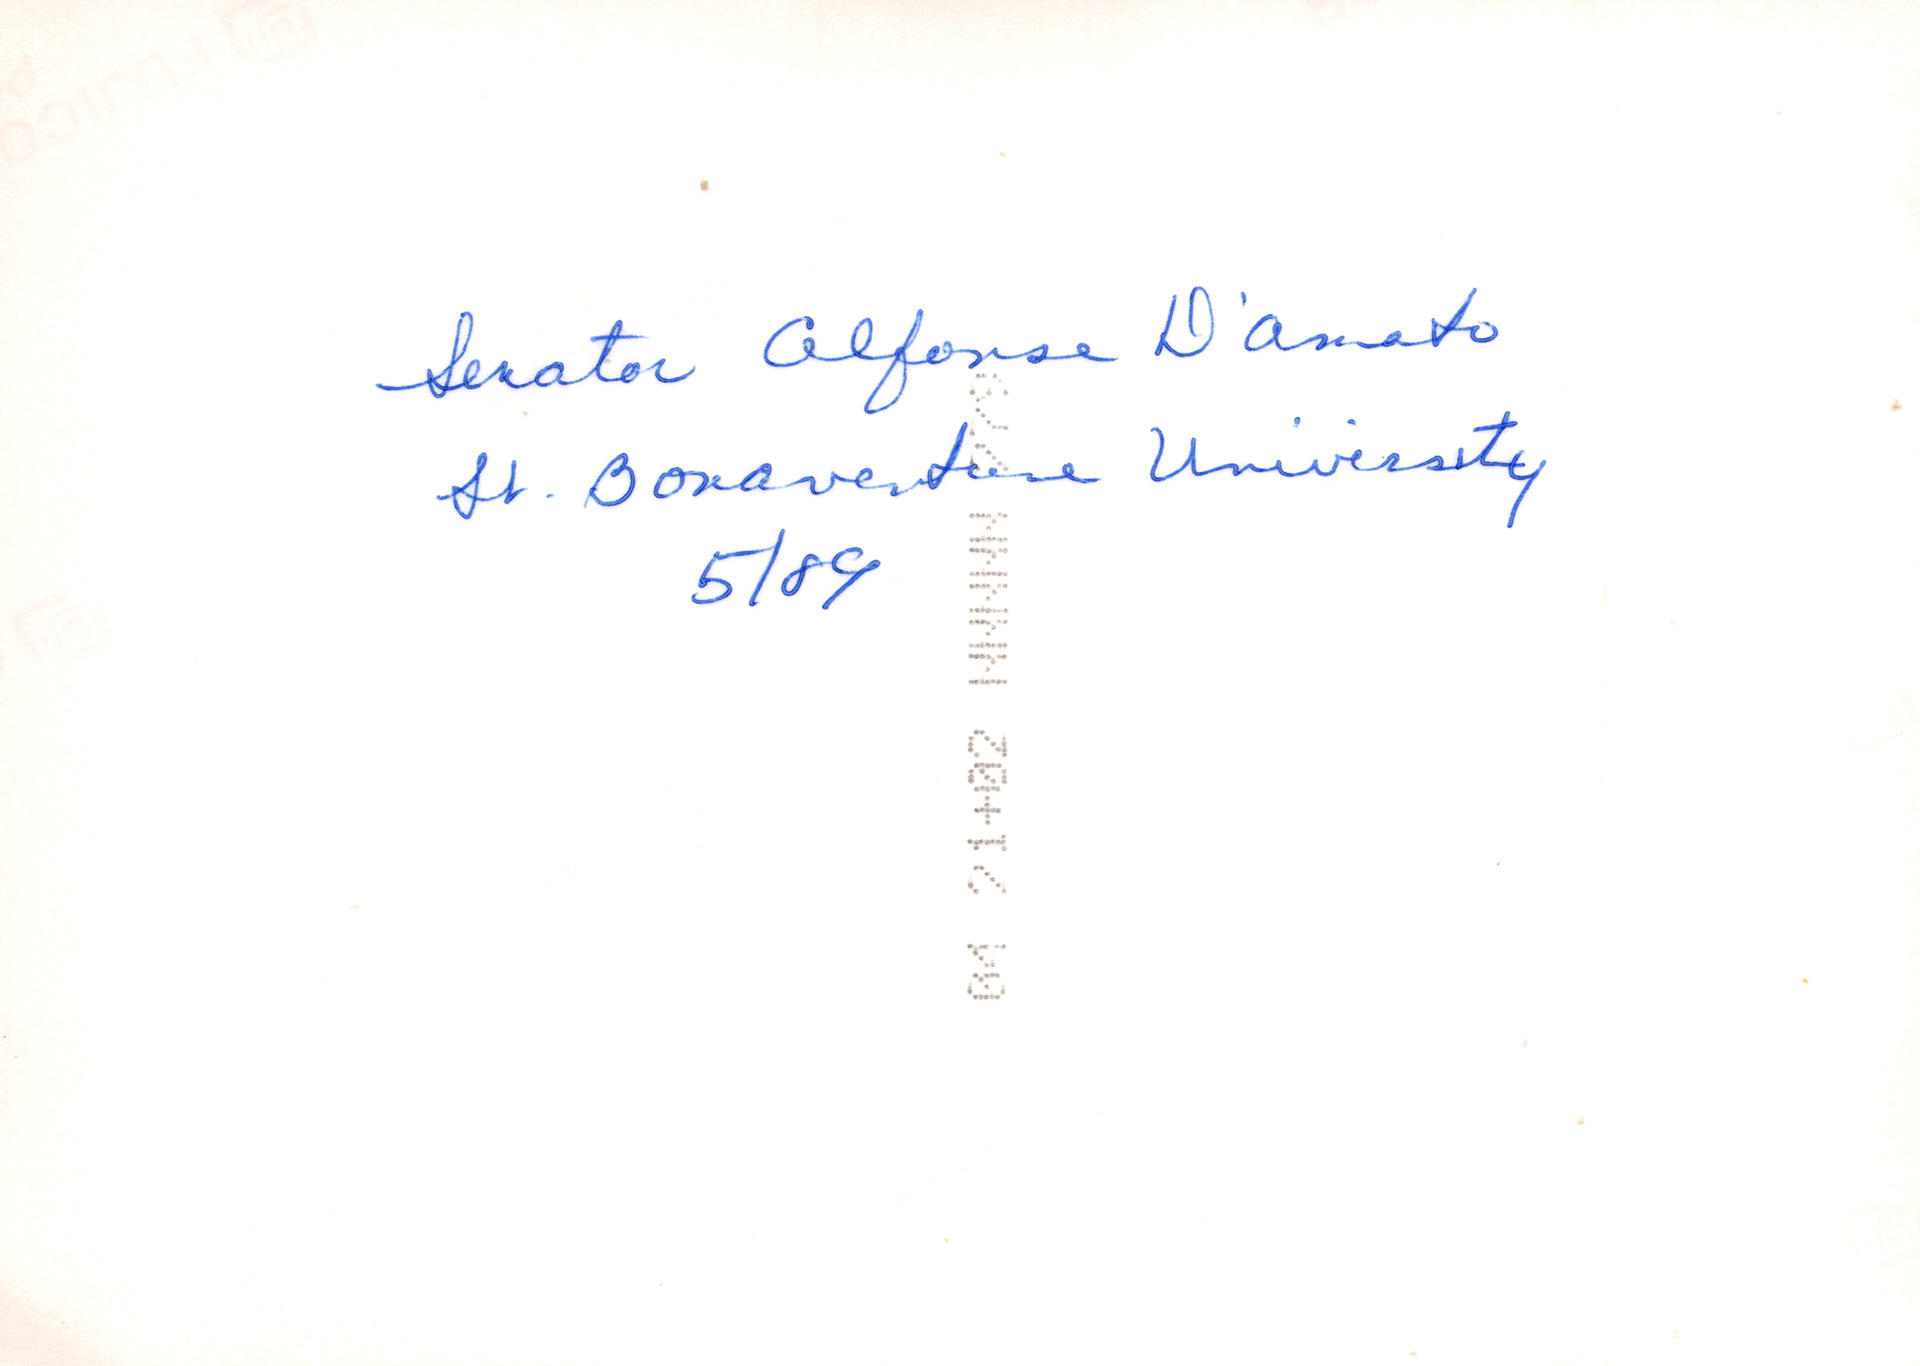 Senator Alfonse D'Amato
St. Bonaventure University
5/89